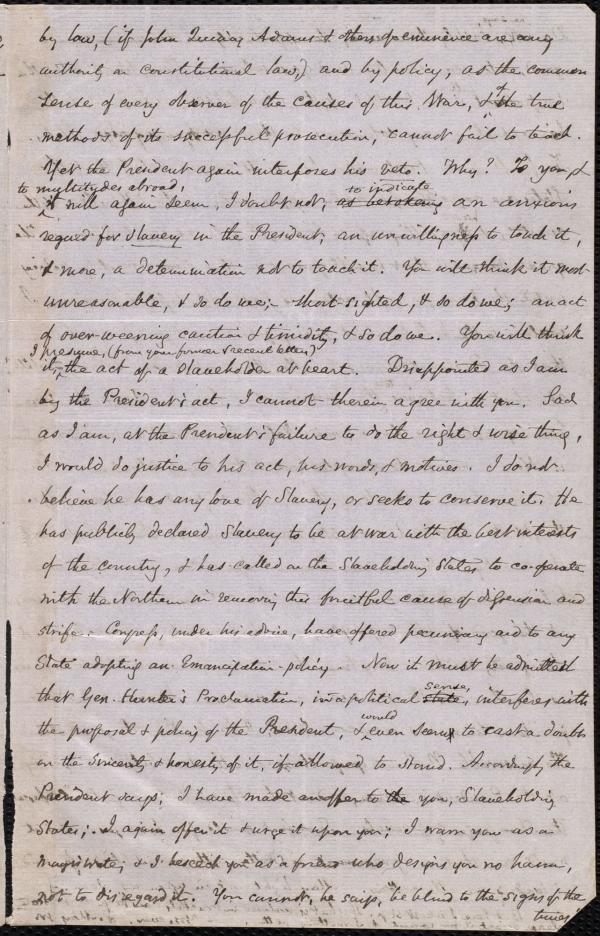 by law, (if John Quincy Adams & others of eminence are any
authority on constitutional law,) and by policy, as the common
sense of every observer of the causes of this War, & of the true
methods of its successful prosecution, cannot fail to teach.
Yet the President again interposes his veto. Why? To you &
to multitudes abroad,
it will again seem, I doubt not, as betokening to indicate an anxious
regard for Slavery in the President, an unwillingness to touch it,
& more, a determination not to touch it. You will think it most
unreasonable, & so do we; short-sighted, & so do we; an act
of over-weening caution & timidity, & so do we. You will think
I presume, (from your former & recent letters)
it, the act of a Slaveholder at heart. Disappointed as I am
by the President's act, I cannot therein agree with you. Sad
as I am, at the President's failure to do the right & wise thing,
I would do justice to his act, his words, & motives. I do not
believe he has any love of Slavery, or seeks to conserve it. He
has publicly declared Slavery to be at war with the best interests
of the country, & has called on the Slaveholding States to co-operate
with the Northern in removing this fruitful cause of dissension and
strife. Congress, under his advice, have offered pecuniary aid to any
State adopting an Emancipation-policy. Now it must be admitted
that Gen. Hunter's Proclamation, in a political state sense, interferes with
the proposal & policy of the President, & would even seem to cast a doubt
on the sincerity & honesty of it, if allowed to stand. Accordingly the
President says; I have made an offer to the you, Slaveholding
States; I again offer it & urge it upon you; I warn you as a
magistrate, & I beseech you as a friend who designs you no harm,
not to disregard it. You cannot, he says, be blind to the signs of the
times"